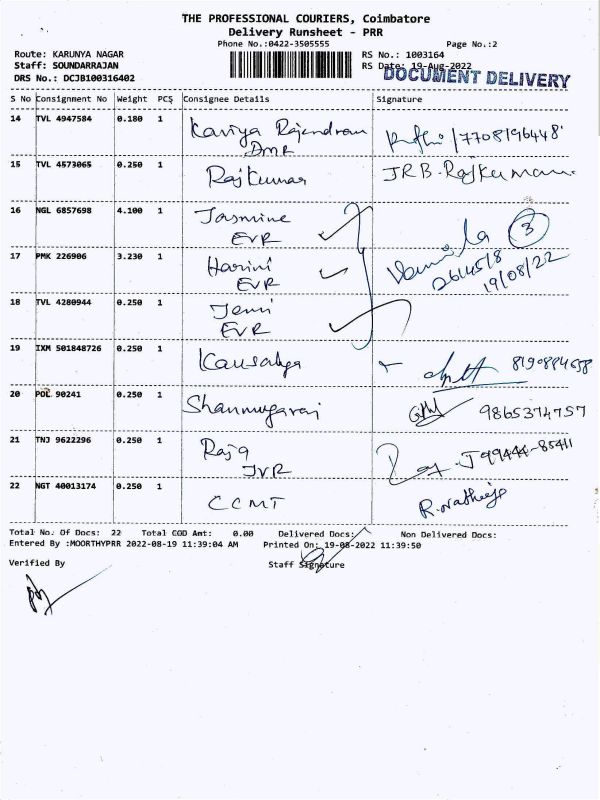 THE PROFESSIONAL COURIERS, Coimbatore
Delivery Runsheet - PRR
Phone No.:0422-3505555 Page No.:2
Route: KARUNYA NAGAR RS No.: 1003164
Staff: SOUNDARRAJAN RS Date: 19-Aug-2022
DRS No.: DCJB100316402 DOCUMENT DELIVERY
S No Consignment No Weight PCS Consignee Details Signature
14 TVL 4947584 0.180 1 Kaviya Rajendran /7708196448
DMR
15 TVL 4573065 0.250 1 Rajkumar JRB.Rajkumar
16 NGL 6857698 4.100 1 Jasmine 3
EVR
17 PMK 226906 3.230 1 Harini 264518
EVR 19/08/22
18 TVL 4280944 0.250 1 Jemi
EVR
19 IXM 501848726 0.250 1 Kausalya 8190884658
20 POL 90241 0.250 1 Shanmugaraj 9865374757
21 TNJ 9622296 0.250 1 Raja 99444-85411
JVR
22 NGT 40013174 0.250 1 CCMT
Total No. Of Docs: 22 Total COD Amt: 0.00 Delivered Docs: Non Delivered Docs:
Entered By :MOORTHYPRR 2022-08-19 11:39:04 AM Printed On: 19-08-2022 11:39:50
Verified By Staff Signature